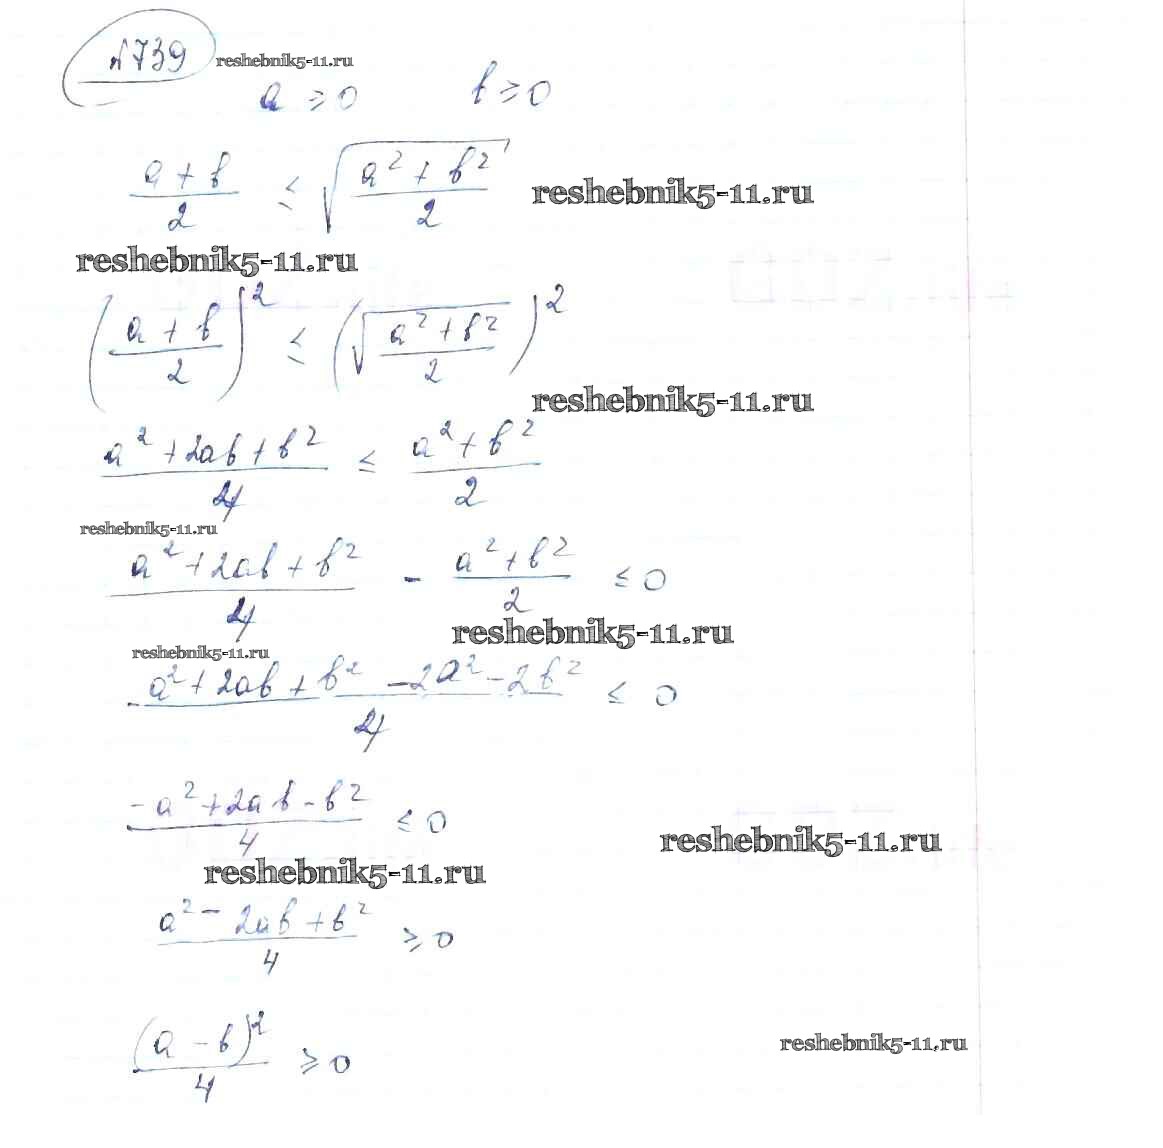 №739 reshebnik5-11.ru
a ≥ 0 b ≥ 0
(a + b)/2 ≤ √((a² + b²)/2) reshebnik5-11.ru
reshebnik5-11.ru
((a + b)/2)² ≤ (√((a² + b²)/2))²
reshebnik5-11.ru
(a² + 2ab + b²)/4 ≤ (a² + b²)/2
reshebnik5-11.ru
(a² + 2ab + b²)/4 - (a² + b²)/2 ≤ 0
reshebnik5-11.ru
reshebnik5-11.ru
(a² + 2ab + b² - 2a² - 2b²)/4 ≤ 0
(-a² + 2ab - b²)/4 ≤ 0
reshebnik5-11.ru
reshebnik5-11.ru
(a² - 2ab + b²)/4 ≥ 0
(a - b)²/4 ≥ 0
reshebnik5-11.ru